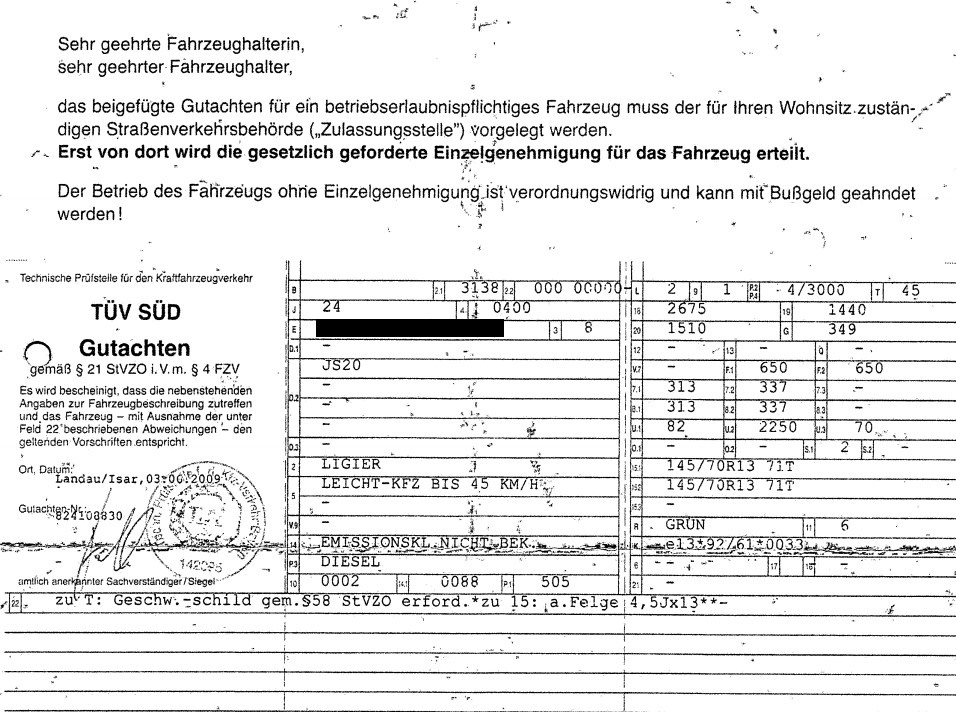 Sehr geehrte Fahrzeughalterin,
sehr geehrter Fahrzeughalter,
das beigefügte Gutachten für ein betriebserlaubnispflichtiges Fahrzeug muss der für Ihren Wohnsitz zustän-
digen Straßenverkehrsbehörde („Zulassungsstelle”) vorgelegt werden.
Erst von dort wird die gesetzlich geforderte Einzelgenehmigung für das Fahrzeug erteilt.
Der Betrieb des Fahrzeugs ohne Einzelgenehmigung ist verordnungswidrig und kann mit Bußgeld geahndet
werden!
Technische Prüfstelle für den Kraftfahrzeugverkehr
TÜV SÜD
Gutachten
gemäß § 21 StVZO i. V. m. § 4 FZV
Es wird bescheinigt, dass die nebenstehenden
Angaben zur Fahrzeugbeschreibung zutreffen
und das Fahrzeug – mit Ausnahme der unter
Feld 22 beschriebenen Abweichungen – den
geltenden Vorschriften entspricht.
Ort, Datum:
Landau/Isar, 03.06.2009
Gutachten-Nr.:
824108830
142095
amtlich anerkannter Sachverständiger/Siegel
B 2.1 3138 2.2 000 00000-
J 24 4 0400
E 3 8
D.1 -
D.2 JS20
D.3 -
2 LIGIER
5 LEICHT-KFZ BIS 45 KM/H
V.9 -
14 EMISSIONSKL.NICHT BEK.
P.3 DIESEL
10 0002 14.1 0088 P.1 505
L 2 9 1 P.2 P.4 4/3000 T 45
18 2675 19 1440
20 1510 G 349
12 - 13 - Q -
V.7 - F.1 650 F.2 650
7.1 313 7.2 337 7.3 -
8.1 313 8.2 337 8.3 -
U.1 82 U.2 2250 U.3 70
O.1 - O.2 - S.1 2 S.2
15.1 145/70R13 71T
15.2 145/70R13 71T
15.3 -
R GRÜN 11 6
K e13*92/61*0033
6 - 17 16 -
21 -
22 zu T: Geschw.-schild gem.§58 StVZO erford.*zu 15: a.Felge 4,5Jx13**-